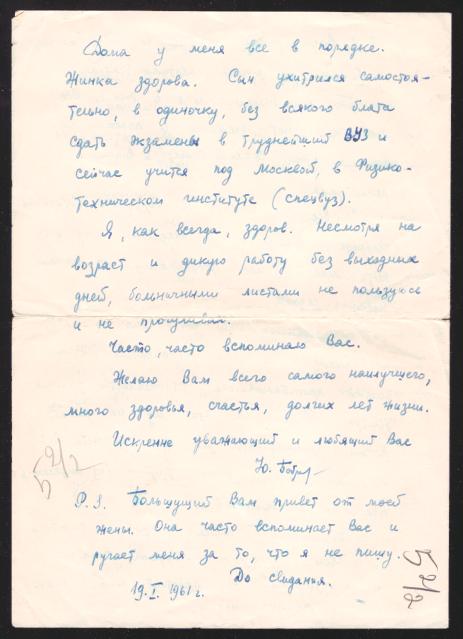 Дома у меня все в порядке.
Жинка здорова. Сын ухитрился самостоя-
тельно, в одиночку, без всякого блата
сдать экзамены в труднейший ВУЗ и
сейчас учится под Москвой, в Физико-
Техническом институте (спецвуз).
Я, как всегда, здоров. Несмотря на
возраст и дикую работу без выходных
дней, больничными листами не пользуюсь
и не
Часто, часто вспоминаю Вас.
Желаю Вам всего самого наилучшего,
много здоровья, счастья, долгих лет жизни.
Искренне уважающий и любящий Вас
Ю.
P.S. Большущий Вам привет от моей
жены. Она часто вспоминает Вас и
ругает меня за то, что я не пишу.
До свиданья.
19.I.1961 г.